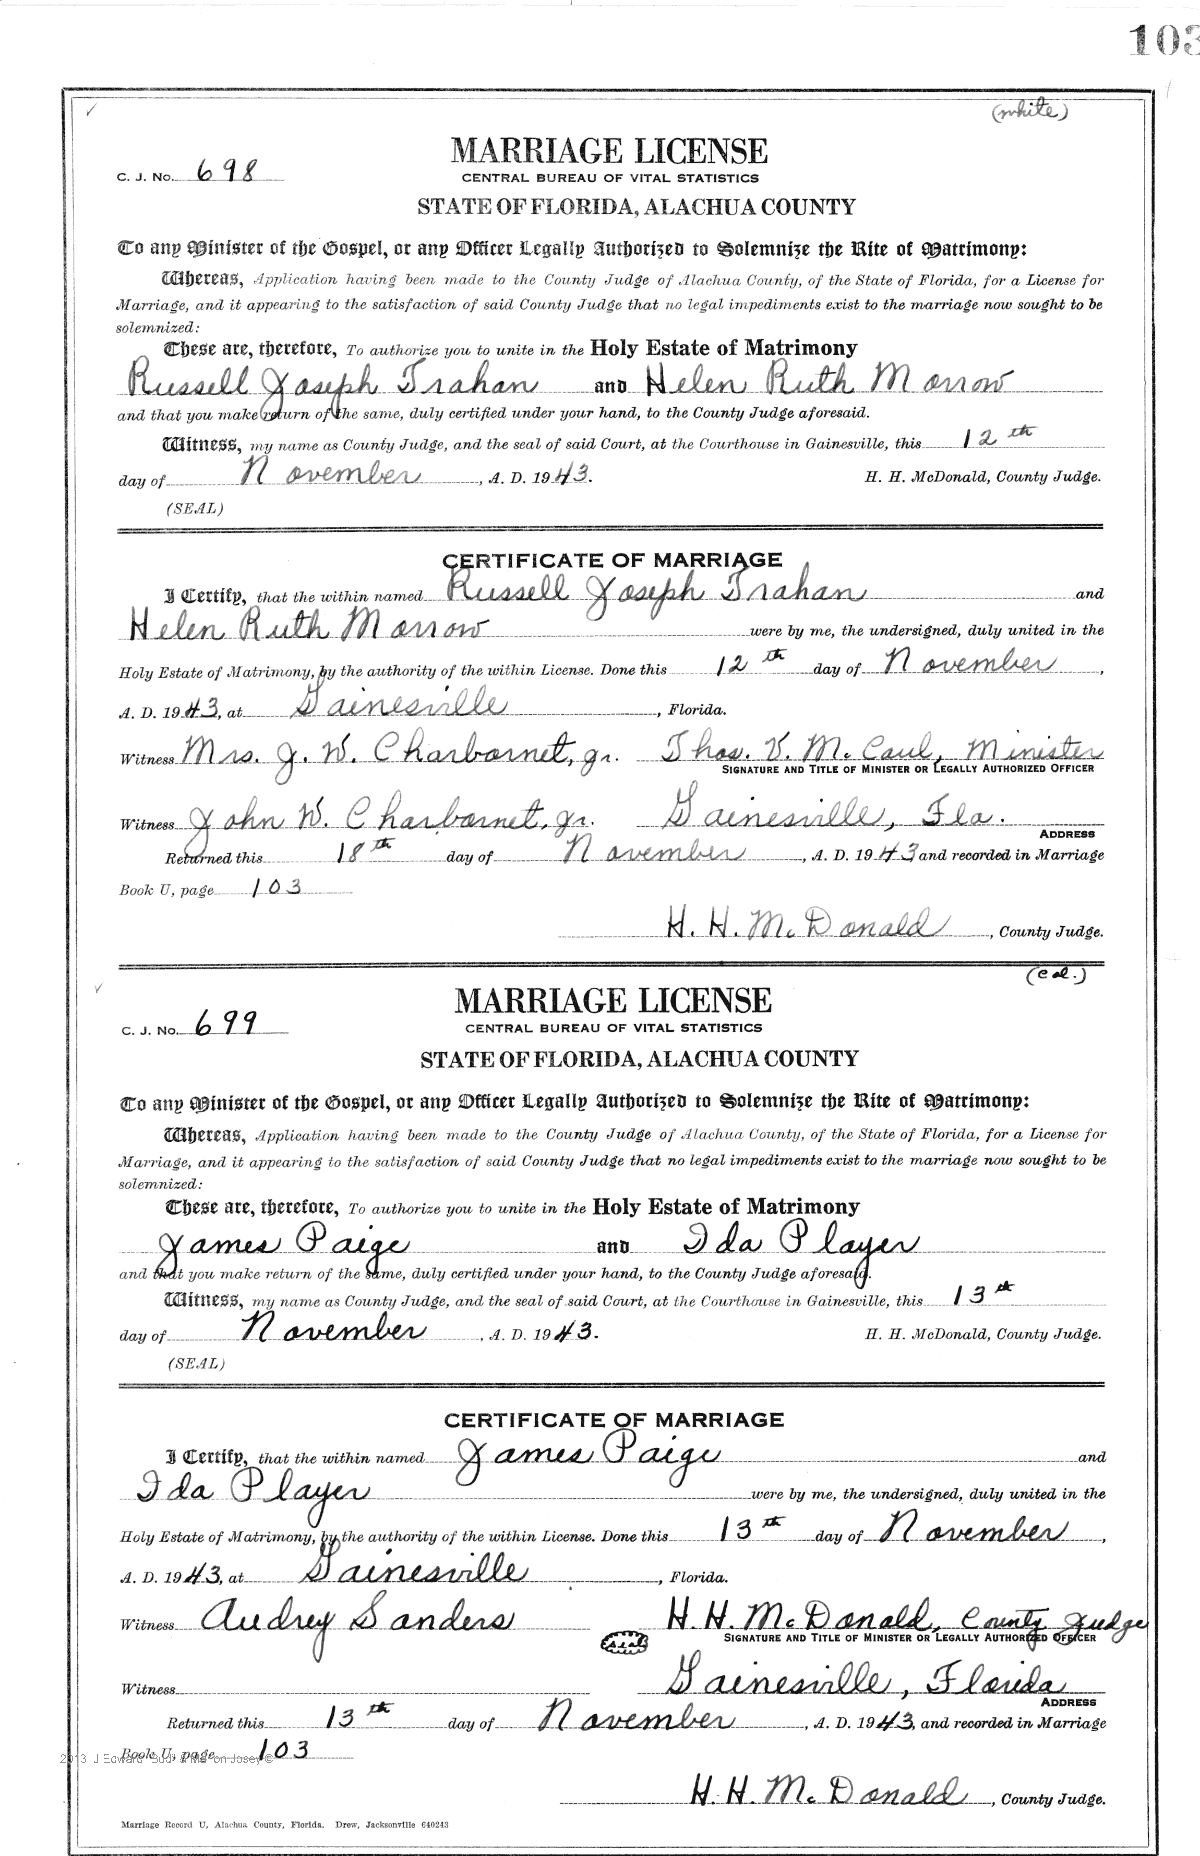 103
(white)
MARRIAGE LICENSE
C. J. No. 698
CENTRAL BUREAU OF VITAL STATISTICS
STATE OF FLORIDA, ALACHUA COUNTY
To any Minister of the Gospel, or any Officer Legally Authorized to Solemnize the Rite of Matrimony:
Whereas, Application having been made to the County Judge of Alachua County, of the State of Florida, for a License for
Marriage, and it appearing to the satisfaction of said County Judge that no legal impediments exist to the marriage now sought to be
solemnized:
These are, therefore, To authorize you to unite in the Holy Estate of Matrimony
Russell Joseph Trahan and Helen Ruth Morrow
and that you make return of the same, duly certified under your hand, to the County Judge aforesaid.
Witness, my name as County Judge, and the seal of said Court, at the Courthouse in Gainesville, this 12th
day of November, A. D. 1943. H. H. McDonald, County Judge.
(SEAL)
CERTIFICATE OF MARRIAGE
I Certify, that the within named Russell Joseph Trahan and
Helen Ruth Morrow were by me, the undersigned, duly united in the
Holy Estate of Matrimony, by the authority of the within License. Done this 12th day of November,
A. D. 1943, at Gainesville, Florida.
Witness Mrs. J. W. Charbonnet, Jr. Thos. V. McCaul, Minister
SIGNATURE AND TITLE OF MINISTER OR LEGALLY AUTHORIZED OFFICER
Witness John W. Charbonnet, Jr. Gainesville, Fla.
ADDRESS
Returned this 18th day of November, A. D. 1943 and recorded in Marriage
Book U, page 103
H. H. McDonald, County Judge.
(col.)
MARRIAGE LICENSE
C. J. No. 699
CENTRAL BUREAU OF VITAL STATISTICS
STATE OF FLORIDA, ALACHUA COUNTY
To any Minister of the Gospel, or any Officer Legally Authorized to Solemnize the Rite of Matrimony:
Whereas, Application having been made to the County Judge of Alachua County, of the State of Florida, for a License for
Marriage, and it appearing to the satisfaction of said County Judge that no legal impediments exist to the marriage now sought to be
solemnized:
These are, therefore, To authorize you to unite in the Holy Estate of Matrimony
James Paige and Ida Player
and that you make return of the same, duly certified under your hand, to the County Judge aforesaid.
Witness, my name as County Judge, and the seal of said Court, at the Courthouse in Gainesville, this 13th
day of November, A. D. 1943. H. H. McDonald, County Judge.
(SEAL)
CERTIFICATE OF MARRIAGE
I Certify, that the within named James Paige and
Ida Player were by me, the undersigned, duly united in the
Holy Estate of Matrimony, by the authority of the within License. Done this 13th day of November,
A. D. 1943, at Gainesville, Florida.
Witness Audrey Sanders (seal) H. H. McDonald, County Judge
SIGNATURE AND TITLE OF MINISTER OR LEGALLY AUTHORIZED OFFICER
Witness Gainesville, Florida
ADDRESS
Returned this 13th day of November, A. D. 1943, and recorded in Marriage
Book U, page 103
2013 J Edward "Bud" & Marion Josey ©
H. H. McDonald, County Judge.
Marriage Record U, Alachua County, Florida. Drew, Jacksonville 640243